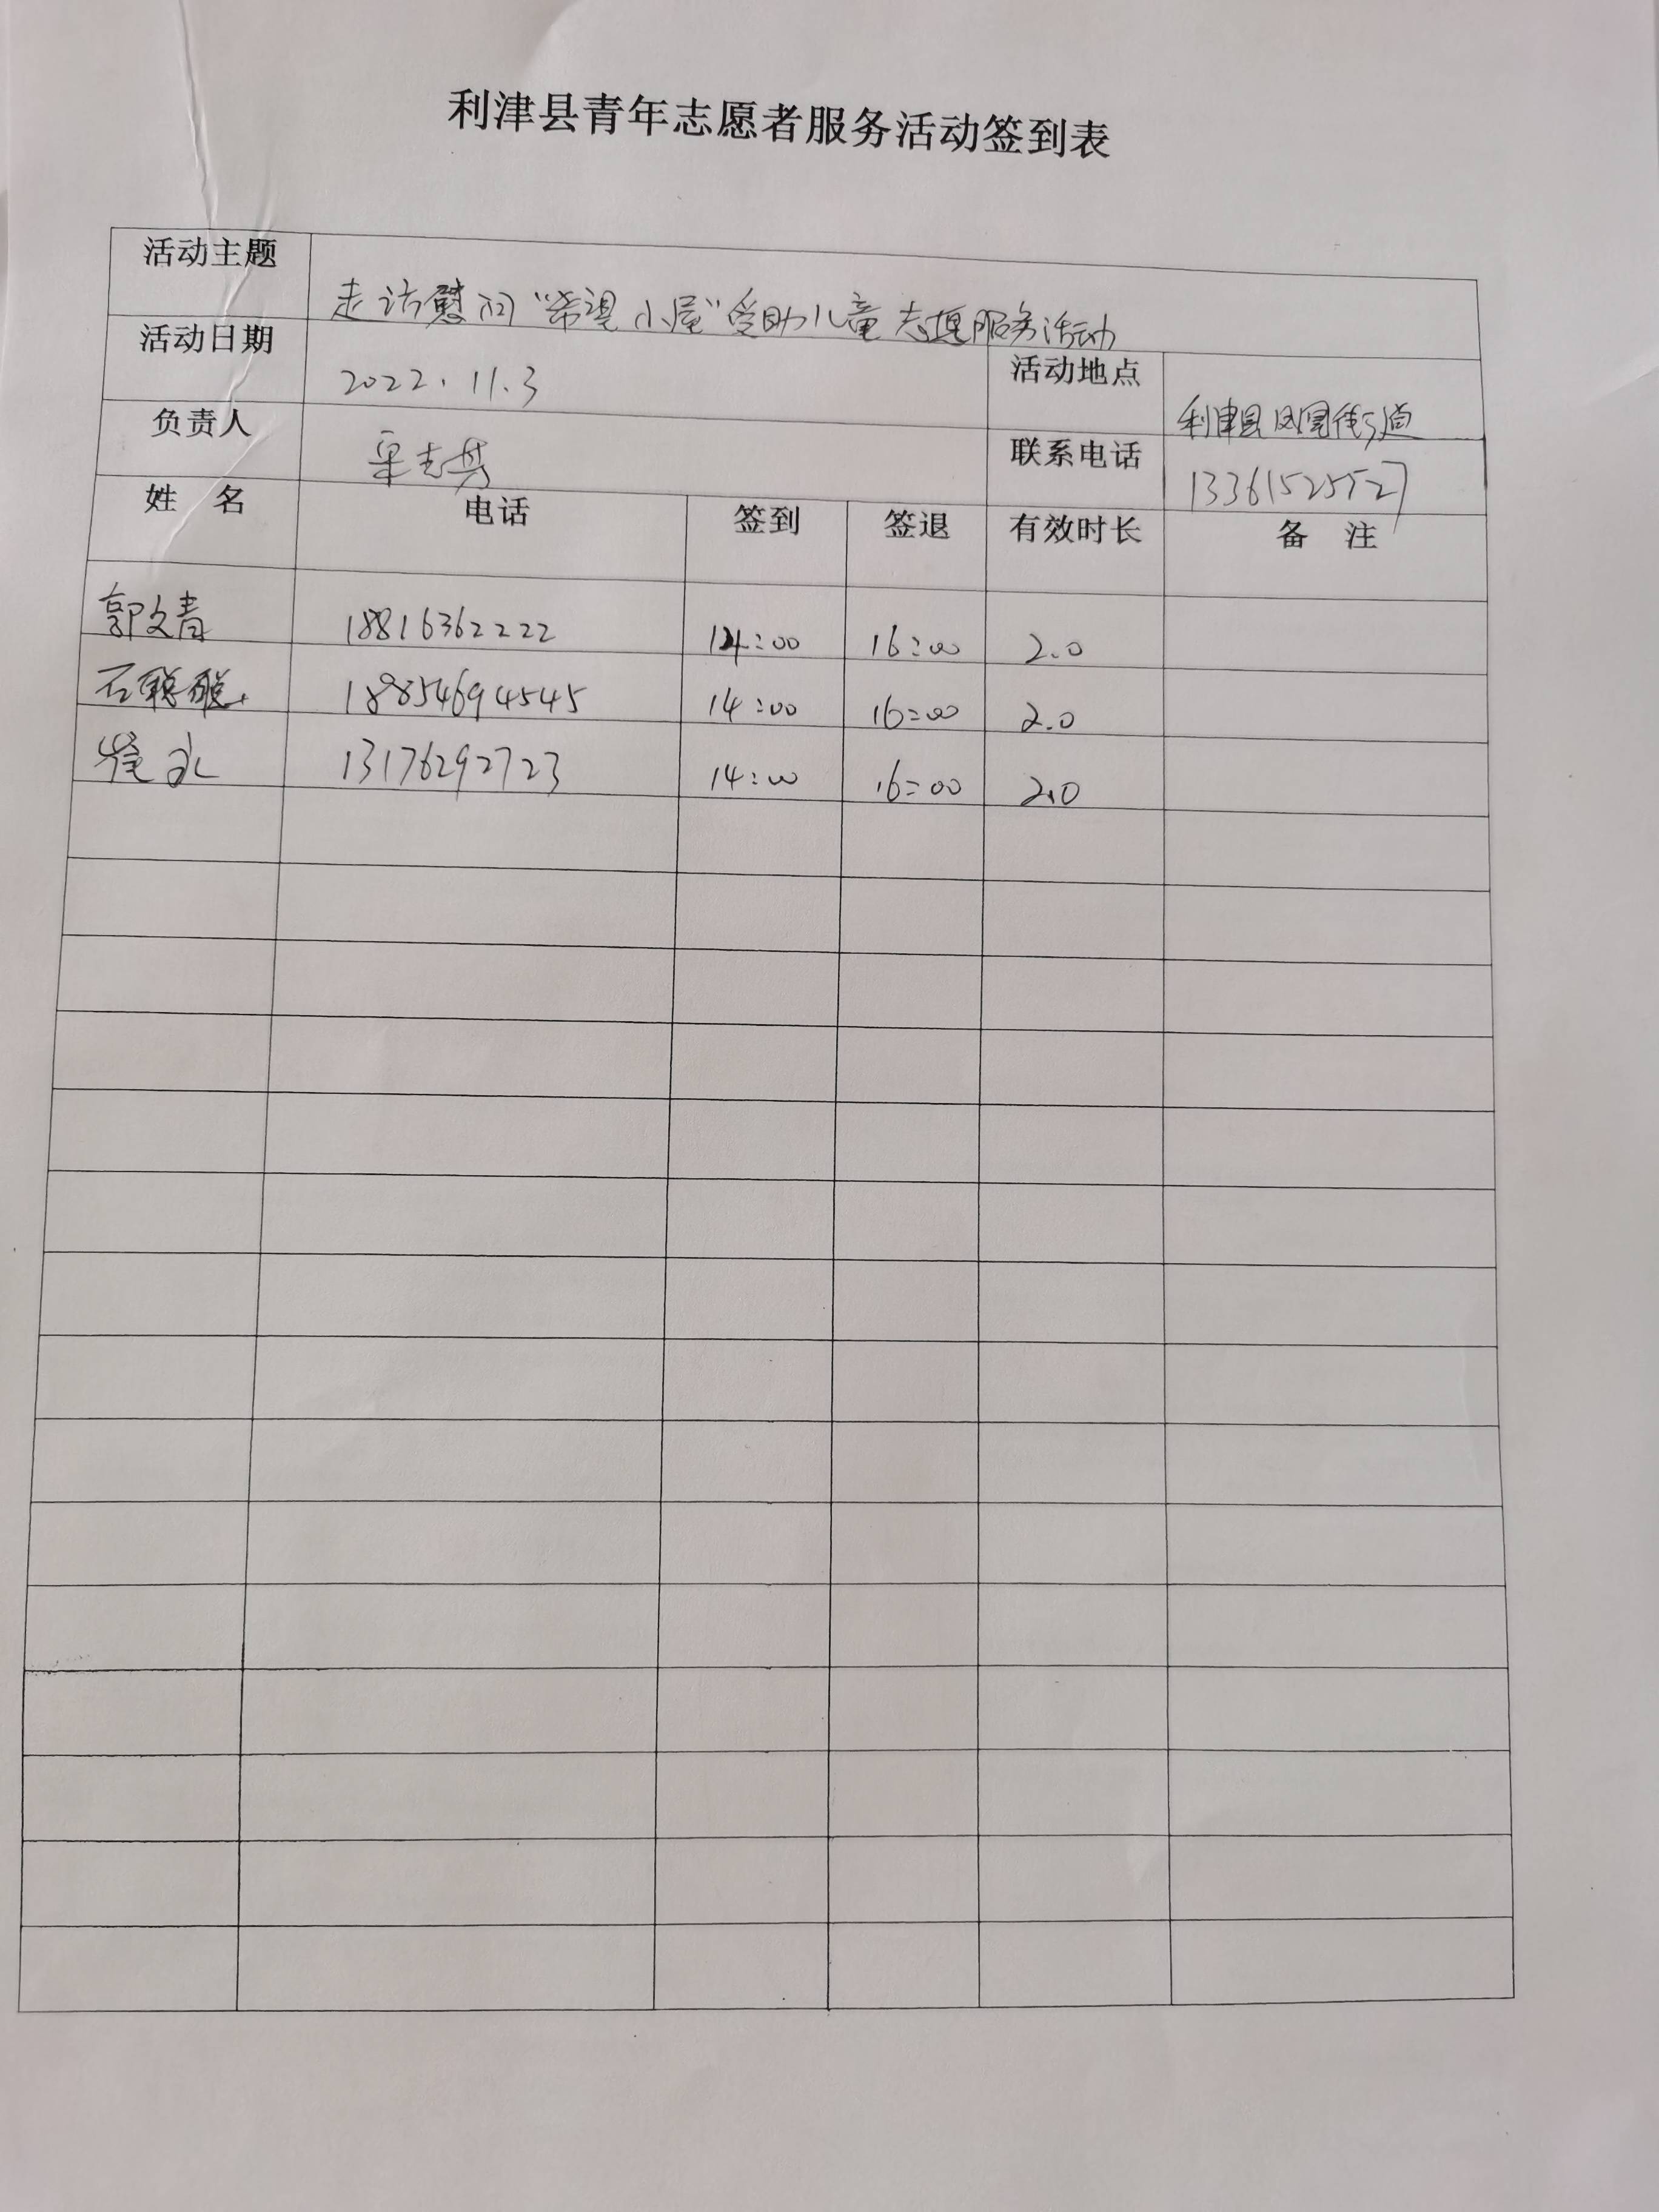 利津县青年志愿者服务活动签到表
活动主题 走访慰问“希望小屋”受助儿童志愿服务活动
活动日期 2022.11.3 活动地点 利津县凤凰街道
负责人 联系电话 13361525527
姓 名 电话 签到 签退 有效时长 备 注
郭文青 18816362222 14:00 16:00 2.0
石聪聪 18854694545 14:00 16:00 2.0
崔永 13176292723 14:00 16:00 2.0